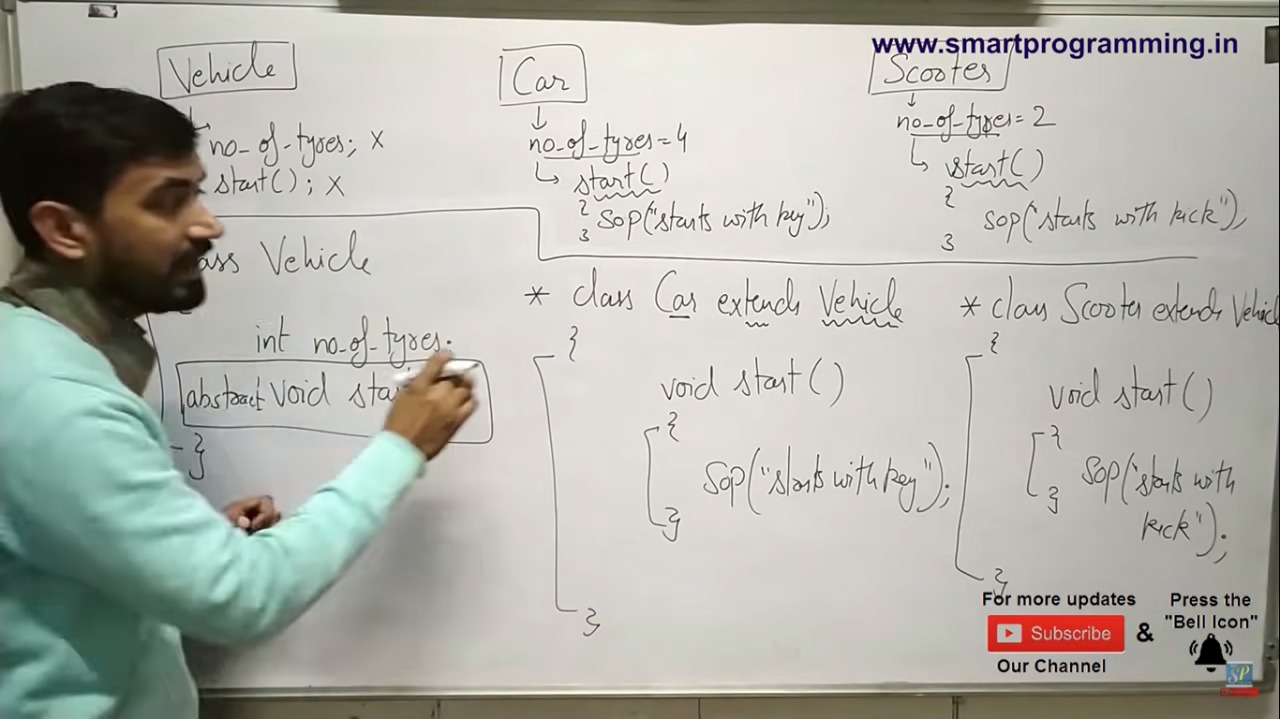 www.smartprogramming.in
Vehicle
no_of_tyres; X
start(); X
Car
no_of_tyres=4
start()
{
SOP("starts with key");
}
Scooter
no_of_tyres=2
start()
{
SOP("starts with kick");
}
Vehicle
int no_of_tyres;
abstract void
}
* class Car extends Vehicle
{
void start()
{
SOP("starts with key");
}
}
* class Scooter extends Vehicle
{
void start()
{
SOP("starts with
kick");
}
}
For more updates
Subscribe
Our Channel
&
Press the
"Bell Icon"
SP